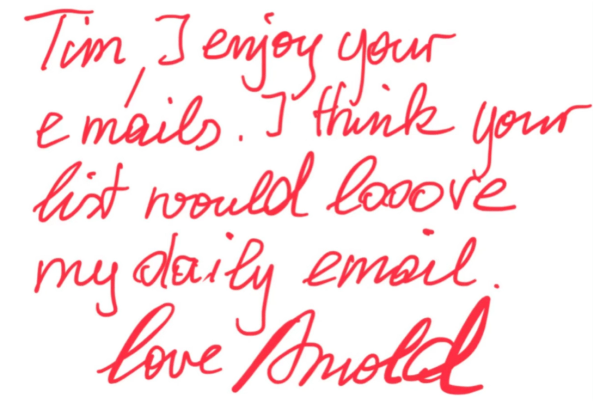 Tim, I enjoy your
emails. I think your
list would looove
my daily email.
love Arnold